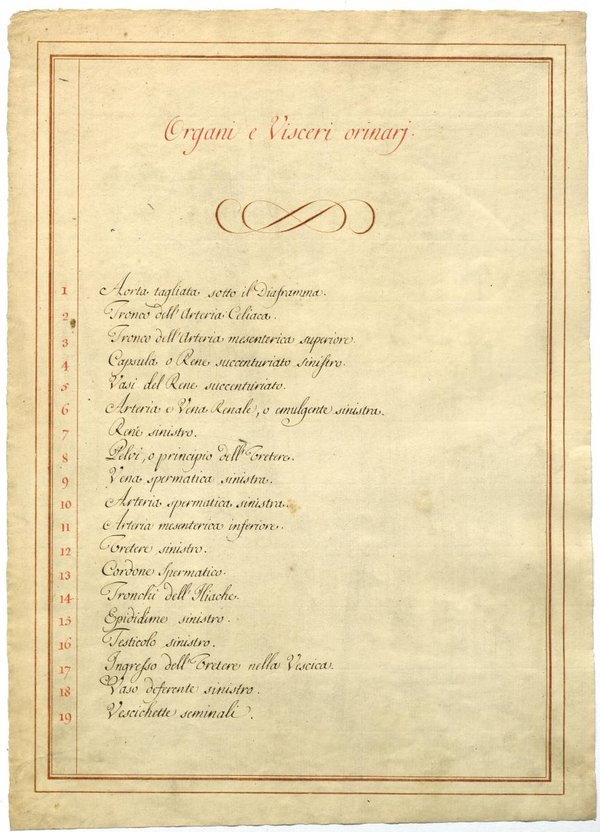 Organi e Visceri orinarj.
1 Aorta tagliata sotto il Diaframma.
2 Tronco dell'Arteria Celiaca.
3 Tronco dell'Arteria mesenterica superiore.
4 Capsula o Rene succenturiato sinistro.
5 Vasi del Rene succenturiato.
6 Arteria e Vena Renale, o emulgente sinistra.
7 Rene sinistro.
8 Pelvi, o principio dell'Uretere.
9 Vena spermatica sinistra.
10 Arteria spermatica sinistra.
11 Arteria mesenterica inferiore.
12 Uretere sinistro.
13 Cordone spermatico.
14 Tronchi dell'Iliache.
15 Epididime sinistro.
16 Testicolo sinistro.
17 Ingresso dell'Uretere nella Vescica.
18 Vaso deferente sinistro.
19 Vescichette seminali.